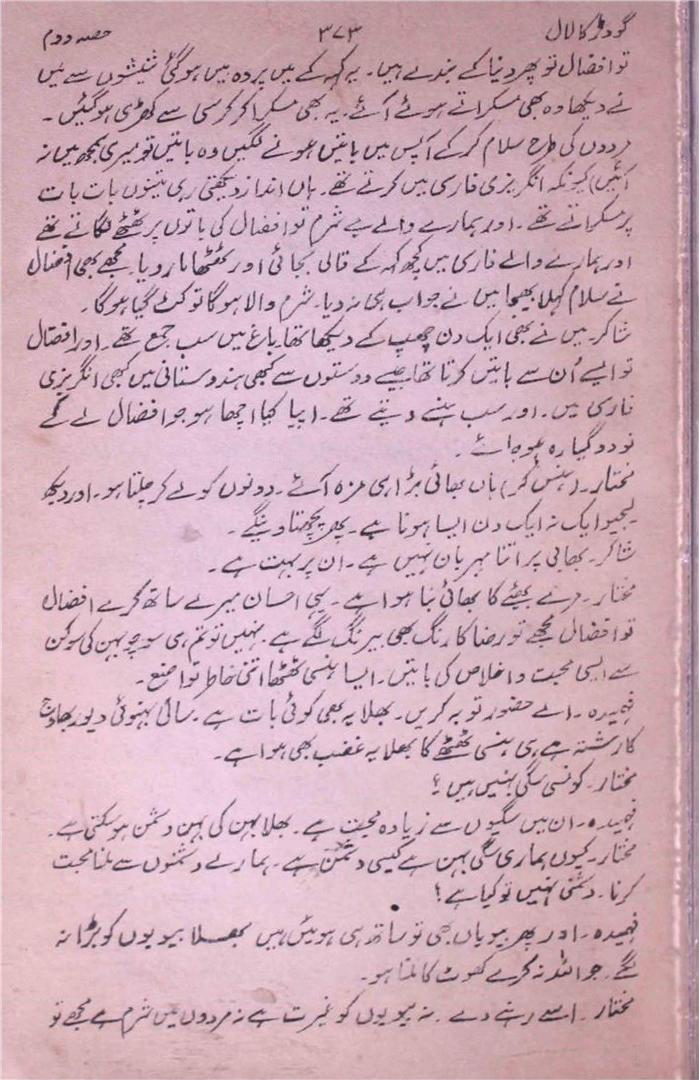 گودڑ کا لال ۳۷۳ حصہ دوم
تو افضال تو پھر دنیا کے بندے ہیں۔ یہ کہہ کے میں پردہ میں ہوگئی شیشوں سے میں
نے دیکھا وہ بھی مسکراتے ہوئے آئے۔ یہ بھی مسکرا کر کرسی سے کھڑی ہوگئیں۔
مردوں کی طرح سلام کر کے آپس میں باتیں ہونے لگیں وہ باتیں تو میری سمجھ میں نہ
آئیں کیونکہ انگریزی فارسی میں کرتے تھے۔ ہاں انداز دیکھتی رہی تینوں بات بات
پر مسکراتے تھے۔ اور ہمارے والے بے شرم تو افضال کی باتوں پر ٹھٹھے لگاتے تھے
اور ہمارے والے فارسی میں کچھ کہہ کے تالی بجائی اور ٹھٹھا مار دیا۔ مجھے بھی افضال
نے سلام کہلا بھیجا میں نے جواب ہی نہ دیا۔ شرم والا ہوگا تو کٹ گیا ہوگا۔
شاکر۔ میں نے بھی ایک دن چھپ کے دیکھا تھا باغ میں سب جمع تھے۔ اور افضال
تو ایسے اُن سے باتیں کرتا تھا جیسے دوستوں سے کبھی ہندوستانی میں کبھی انگریزی
فارسی میں۔ اور سب ہنسے دیتے تھے۔ اپیا کیا اچھا ہو جو افضال لے کے
نو دو گیارہ ہو جائے۔
مختار۔ (ہنس کر) ہاں بھائی بڑا ہی مزہ آئے۔ دونوں کو لے کر چلتا ہو۔ اور دیکھ
لیجیو ایک نہ ایک دن ایسا ہونا ہے۔ پھر پچھتاوینگے۔
شاکر۔ بھابی پر اتنا مہربان نہیں ہے۔ ان پر بہت ہے۔
مختار۔ مرے بھٹے کا بھائی بنا ہوا ہے۔ یہی احسان میرے ساتھ کرے افضال
تو افضال مجھے تو رضا کا رنگ بھی بیرنگ لگے ہے۔ نہیں تو تم ہی سوچو بہن کی سوکن
سے ایسی محبت و اخلاص کی باتیں۔ ایسا ہنسی ٹھٹھا اتنی خاطر تواضع۔
فہمیدہ۔ اے حضور توبہ کریں۔ بھلا یہ بھی کوئی بات ہے۔ سالی بہنوئی دیور بھاوج
کا رشتہ ہے ہی ہنسی ٹھٹھے کا بھلا یہ غضب بھی ہوا ہے۔
مختار۔ کونسی سگی بہنیں ہیں؟
فہمیدہ۔ ان میں سگیوں سے زیادہ محبت ہے۔ بھلا بہن کی بہن دشمن ہوسکتی ہے۔
مختار۔ کیوں ہماری سگی بہن ہے کیسی دشمن ہے۔ ہمارے دشمنوں سے ملنا محبت
کرنا۔ دشمنی نہیں تو کیا ہے؟
فہمیدہ۔ اور پھر بیویاں بھی تو ساتھ ہی ہوتیں ہیں بھلا بیویوں کو بڑا نہ
لگے۔ جو اللہ نہ کرے کھوٹ کا ملنا ہو۔
مختار۔ اسے رہنے دے۔ نہ بیویوں کو غیرت ہے نہ مردوں میں شرم ہے مجھے تو